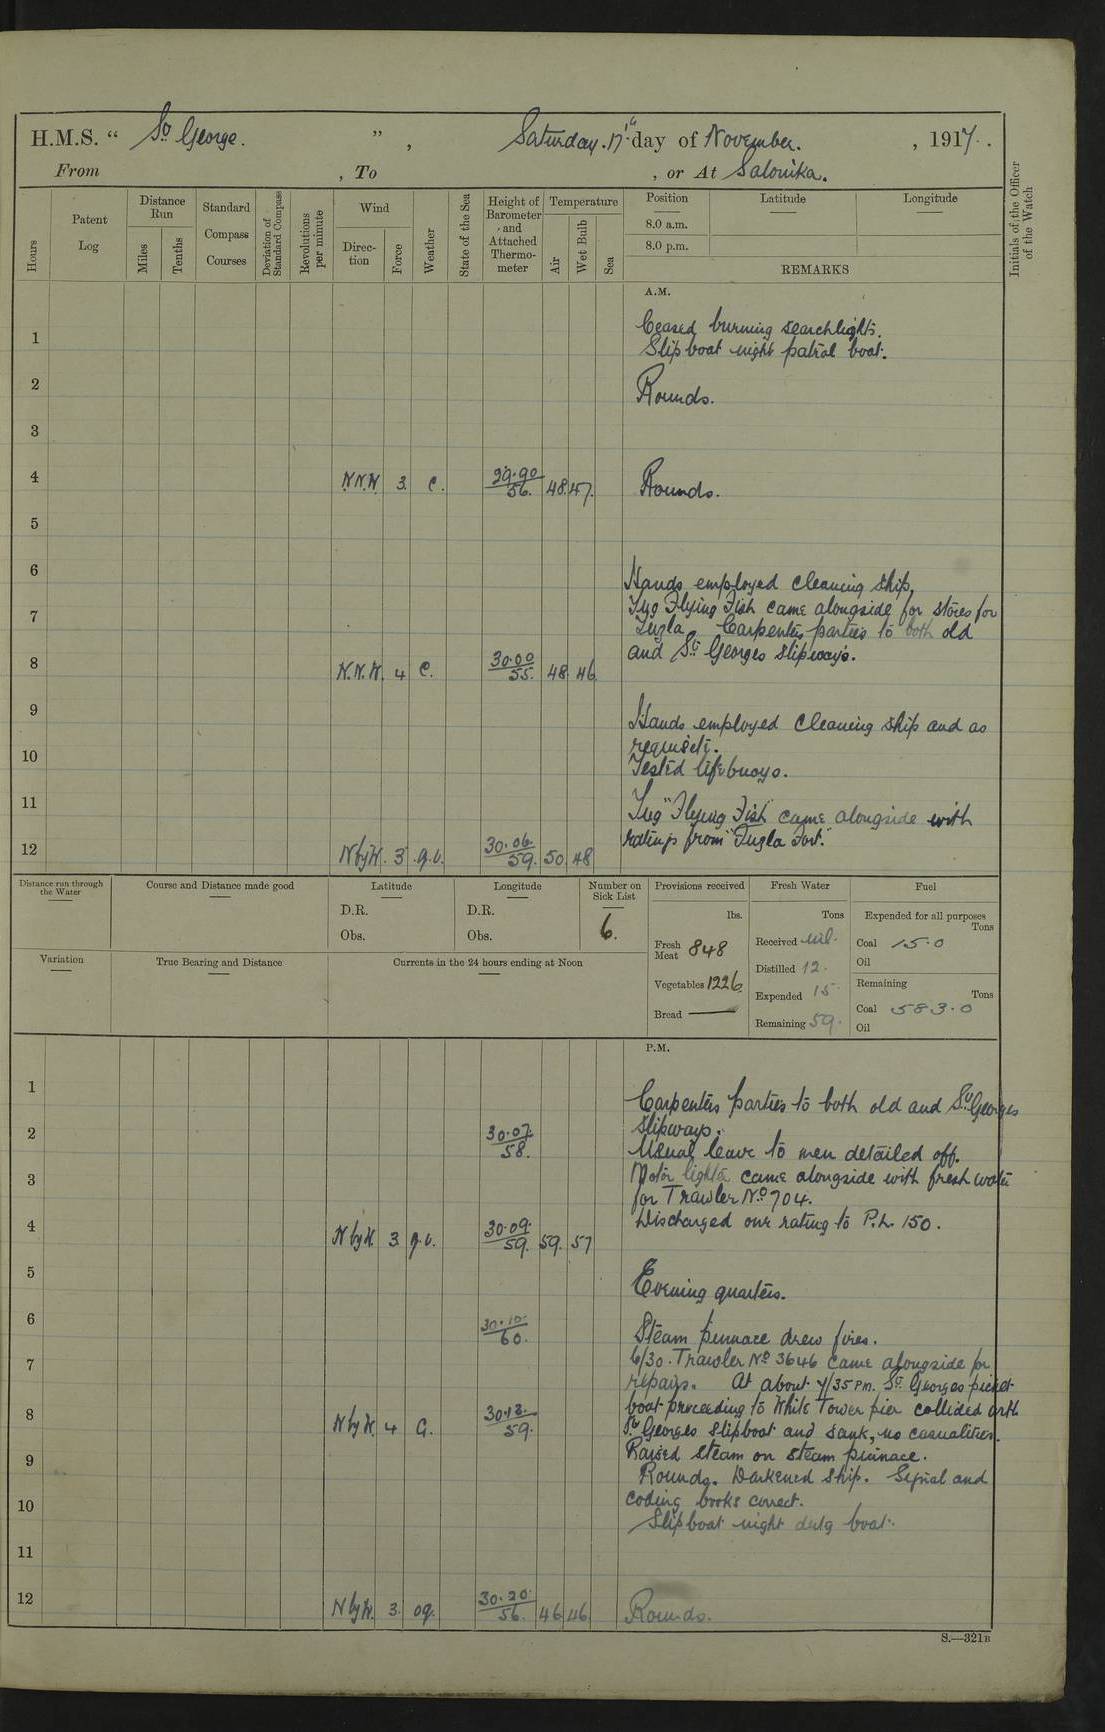 H.M.S. " St George. ", Saturday. 17th day of November. , 1917.
From , To , or At Salonika.
Hours
Patent Log
Distance Run
Miles
Tenths
Standard Compass Courses
Deviation of Standard Compass
Revolutions per minute
Wind
Direction
Force
Weather
State of the Sea
Height of Barometer and Attached Thermometer
Temperature
Air
Wet Bulb
Sea
Position Latitude Longitude
8.0 a.m.
8.0 p.m.
REMARKS
Initials of the Officer of the Watch
A.M.
1 Ceased burning searchlights.
Slip boat night patrol boat.
2 Rounds.
3
4 N.N.W 3. C. 29.90/56. 48. 47. Rounds.
5
6 Hands employed cleaning ship.
7 Tug Flying Fish came alongside for stores for
Tuzla. Carpenters parties to both old
8 N.N.W. 4 C. 30.00/55. 48 46. and St Georges slipways.
9 Hands employed cleaning ship and as
requisite.
10 Tested lifebuoys.
11 Tug "Flying Fish" came alongside with
12 N by W. 3 g.v. 30.06./59. 50. 48 ratings from "Tuzla Fort."
Distance run through the Water
Course and Distance made good
Latitude
D.R.
Obs.
Longitude
D.R.
Obs.
Number on Sick List
6.
Provisions received
lbs.
Fresh Meat 848
Vegetables 1226.
Bread —
Fresh Water
Tons
Received nil.
Distilled 12.
Expended 15
Remaining 59.
Fuel
Expended for all purposes
Tons
Coal 15.0
Oil
Remaining
Tons
Coal 583.0
Oil
Variation
True Bearing and Distance
Currents in the 24 hours ending at Noon
P.M.
1 Carpenters parties to both old and St Georges
2 30.07./58. slipways.
Usual leave to men detailed off.
3 Motor lighter came alongside with fresh water
for Trawler No 704.
4 N by W. 3 g.v. 30.09./59. 59. 57 Discharged one rating to P.L. 150.
5 Evening quarters.
6 30.10./60. Steam pinnace drew fires.
7 6/30. Trawler No 3646 came alongside for
repairs. At about 7/35 PM. St Georges picket
8 N by W. 4 G. 30.12./59. boat proceeding to White Tower pier collided with
St Georges slipboat and sank, no casualities.
9 Raised steam on steam pinnace.
Rounds. Darkened ship. Signal and
10 coding books correct.
Slip boat night duty boat.
11
12 N by W. 3. og. 30.20./56. 46 46. Rounds.
S.—321B